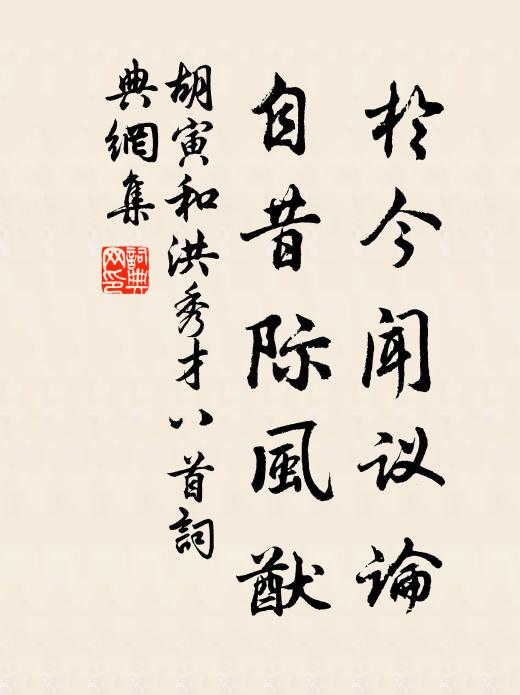 於今闻议論
自昔际風猷
胡寅和洪秀才八首詞
典網集
詞典网印